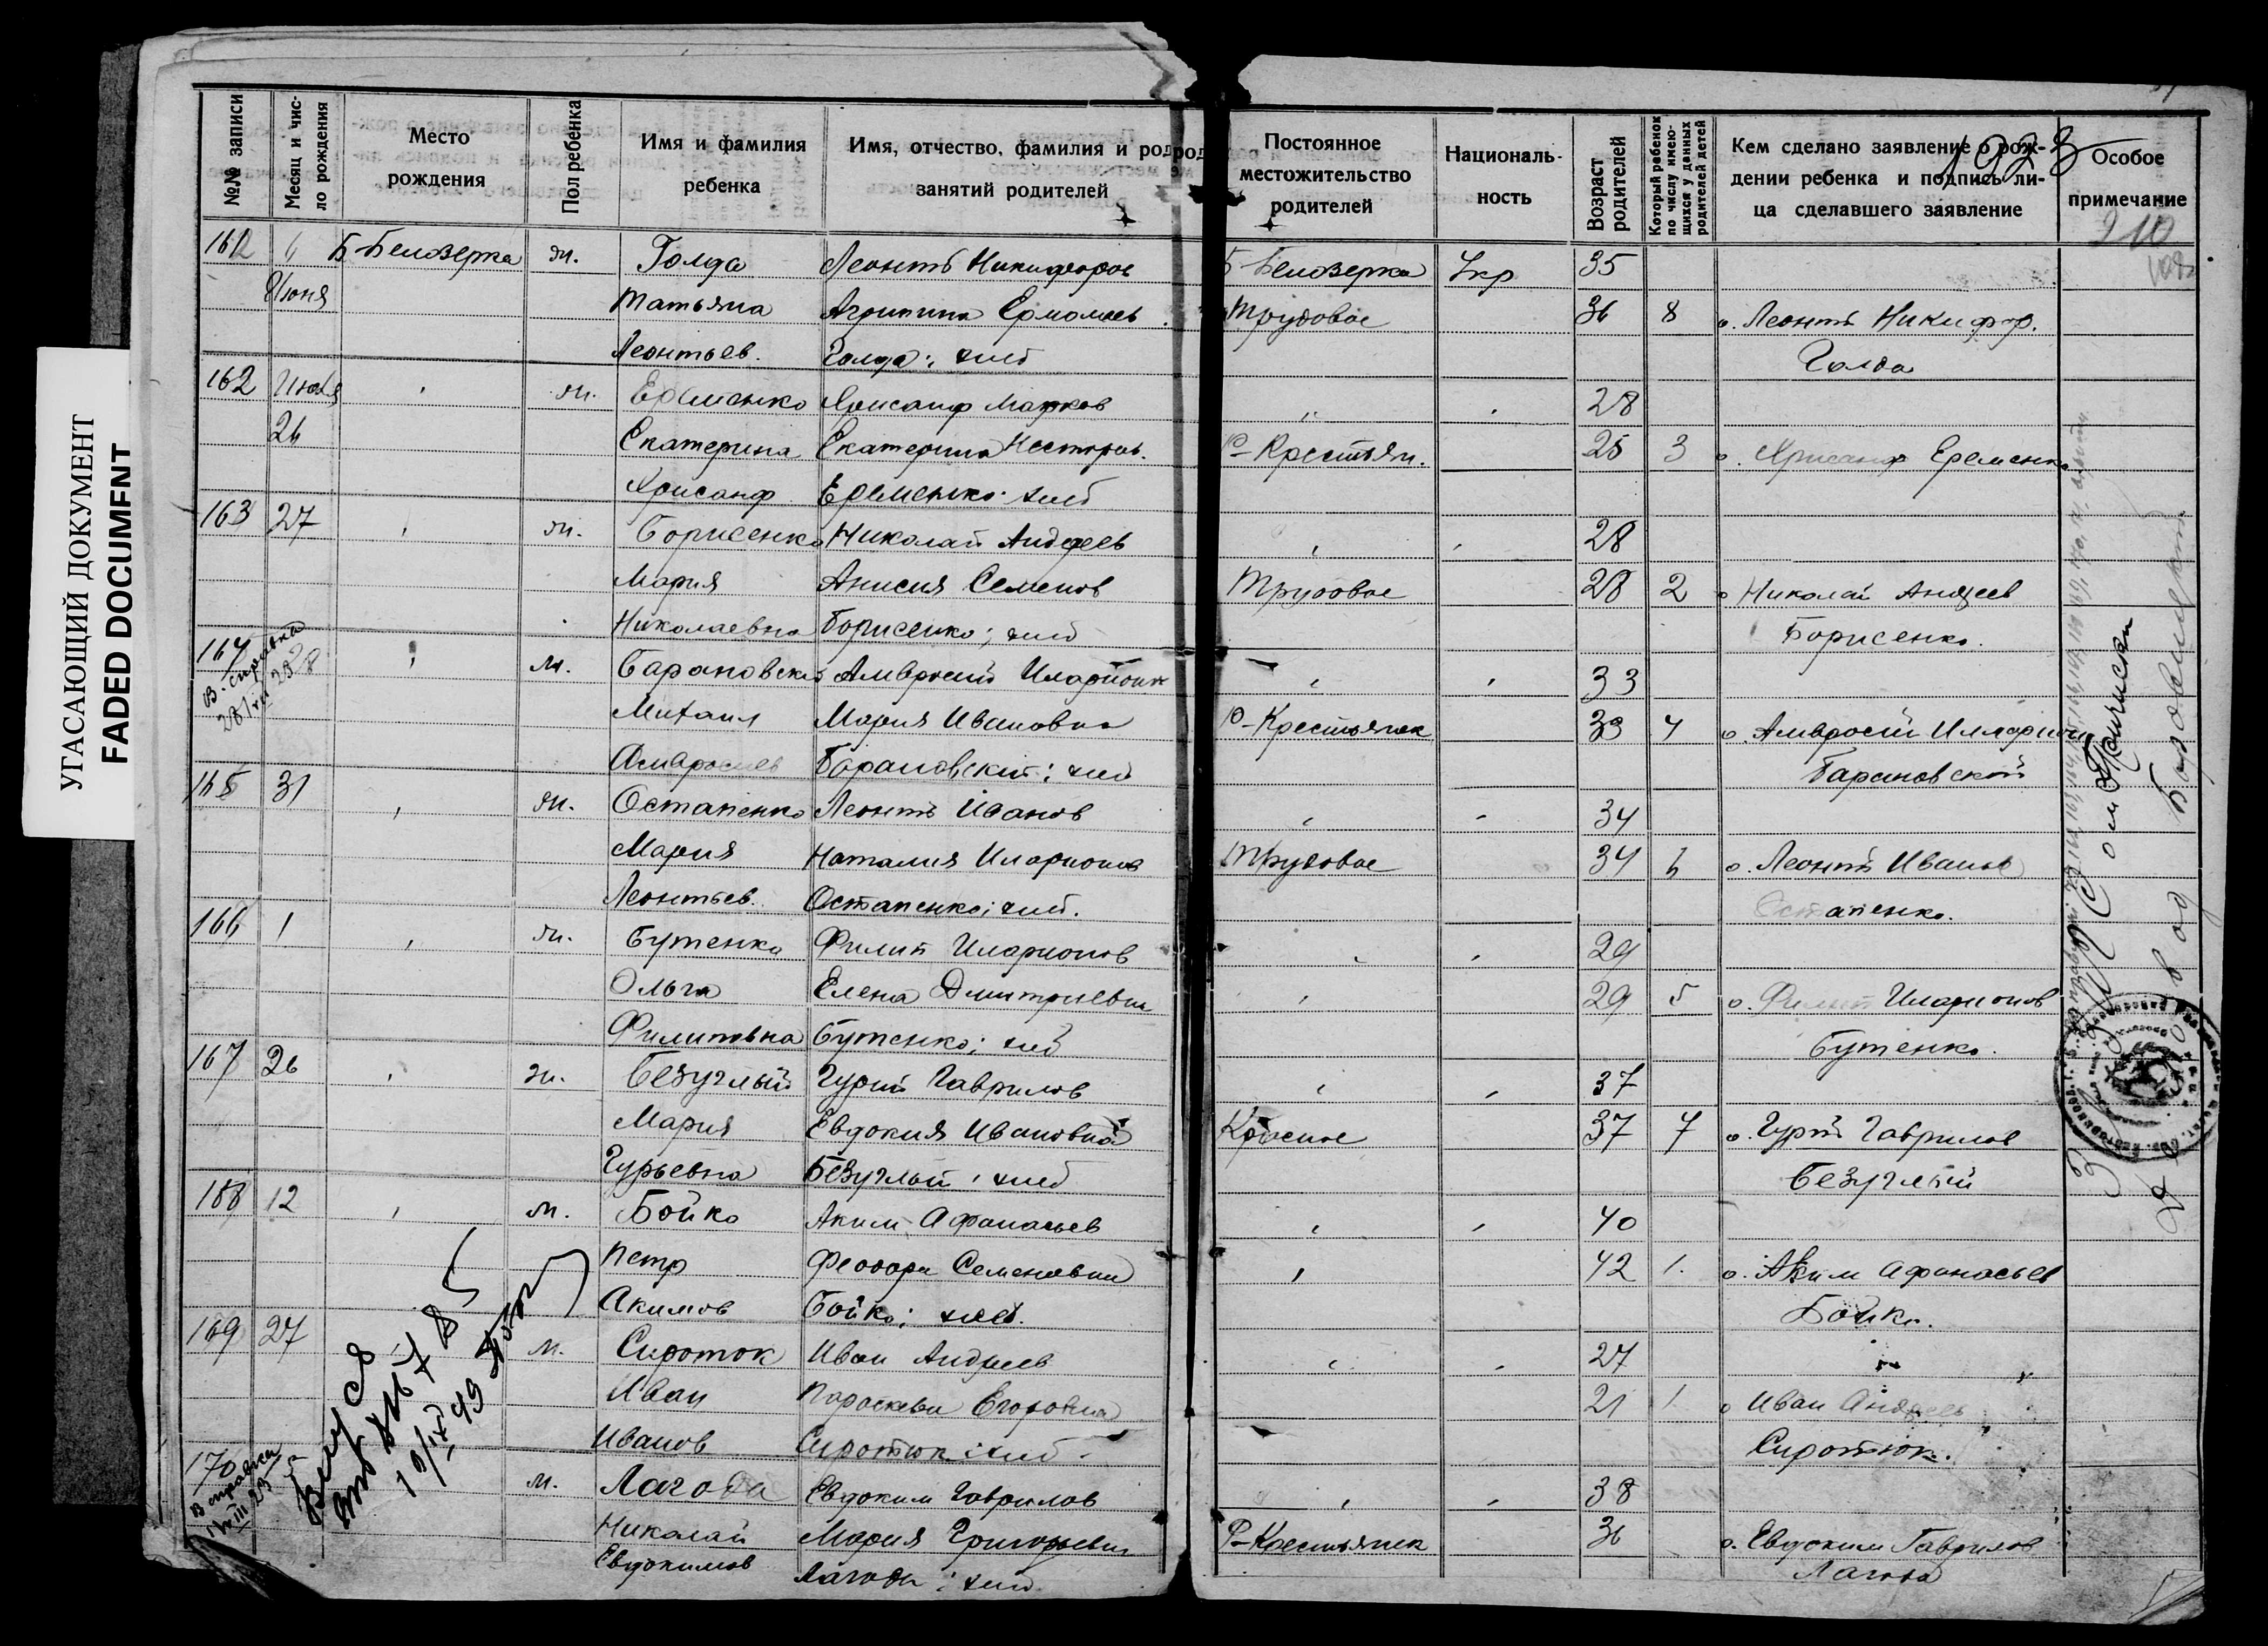 УГАСАЮЩИЙ ДОКУМЕНТ
FADED DOCUMENT
№№ записи
Месяц и чис-
ло рождения
Место
рождения
Пол ребенка
Имя и фамилия
ребенка
Имя, отчество, фамилия и род
занятий родителей
Постоянное
местожительство
родителей
Националь-
ность
Возраст
родителей
Который ребенок
по числу имею-
щихся у данных
родителей детей
Кем сделано заявление о рож-
дении ребенка и подпись ли-
ца сделавшего заявление
Особое
примечание
1923
210
161 Б-Белозерка ж. Голда Леонтъ Никифоров Б-Белозерка Укр 35
Июня Татьяна Агрипина Ермолаев Трудовое 36 8 о. Леонтъ Никифор.
Леонтьев. Голда; хлеб Голда
162 Июля " ж. Еременко Хрисанф Марков " " 28
26 Екатерина Екатерина Несторов. Р-Крестьян. 25 3 о. Хрисанф Еременко
Хрисанф Еременко; хлеб
163 27 " ж. Борисенко Николай Андреев " " 28
Мария Анисия Семенов Трудовое 28 2 о Николай Андреев
Николаевна Борисенко; хлеб Борисенко.
164 28 " м. Барановский Амвросий Иларионов " " 33
В. справка
Михаил Мария Ивановна Р-Крестьянск 33 4 о. Амвросий Илларионов
Амвросиев Барановский; хлеб Барановской
165 31 " ж. Остапенко Леонтъ Иванов " " 34
Мария Наталия Иларионов Трудовое 34 6 о. Леонтъ Иванов
Леонтьев. Остапенко; хлеб. Остапенко.
166 1 " ж. Бутенко Филип Иларионов " " 29
Ольга Елена Дмитриевна " 29 5 о. Филип Иларионов
Филиповна Бутенко; хлеб Бутенко.
167 26 " ж. Безуглый Гурий Гаврилов " " 37
Мария Евдокия Ивановна Красное 37 7 о. Гурий Гаврилов
Гурьевна Безуглый; хлеб Безуглый
168 12 " м. Бойко Аким Афанасьев " " 40
Петр Феодора Семеновна " 42 1. о. Аким Афанасьев
Акимов Бойко; хлеб. Бойко.
169 27 " м. Сироток Иван Андреев " " 27
Иван Параскева Егоровна 21 1 о Иван Андреев
Иванов Сиротюк; хлеб. Сиротюк.
170 м. Лагода Евдоким Гаврилов " " 38
В справка
Николай Мария Григорьевна Р-Крестьянск 36 о. Евдоким Гаврилов
Евдокимов Лагода; хлеб Лагода